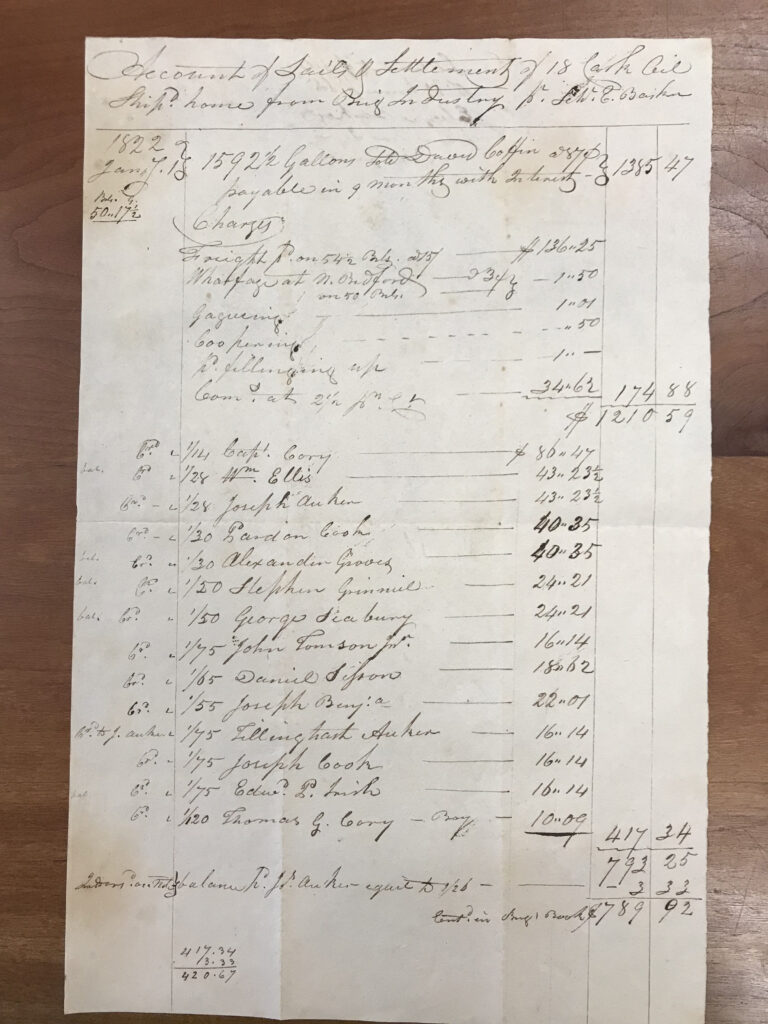 Account of Sails & Settlement of 18 Cask Oil
Ship.d home from Brig Industry pr. Schr. E. Barker
1822
Jany. 1st 1592½ Gallons Sold David Coffin @87¢ 1385 47
payable in 9 months with Interest
Bls. G.
50"17½
Charges
Freight Pd. on 54½ Bls. @ $136"25
Wharfage at N. Bedford @ 3¢ 1"50
on 50 Bls.
Gagueing 1"01
Coopering "50
Pd. fillinging up 1"—
Com.s at 2½ pr. Ct 34"62 174 88
$ 1210 59
Crd. " 1/14 Capt. Cory $ 86"47
bal. Crd. " 1/28 Wm. Ellis 43"23½
Crd. " 1/28 Joseph Auker 43"23½
Crd. " 1/30 Pardon Cook 40"35
bal. Crd. " 1/30 Alexander Groves 40"35
bal. Crd. " 1/50 Stephen Grinnil 24"21
bal. Crd. " 1/50 George Seabury 24"21
Crd. " 1/75 John Tomson Jnr. 16"14
Crd. " 1/65 Daniel Sisson 18"62
Crd. " 1/55 Joseph Benja 22"01
Crd. to J. auker " 1/75 Tillinghast Auker 16"14
Crd. " 1/75 Joseph Cook 16"14
bal Crd. " 1/75 Edwd. P. Irish 16"14
Crd. " 1/120 Thomas G. Cory — Boy — 10"09 417 34
793 25
balance Pd. Js. Auker equil to 1/26 — 3 33
Entd. in Brigs Book $ 789 92
417.34
3.33
420.67